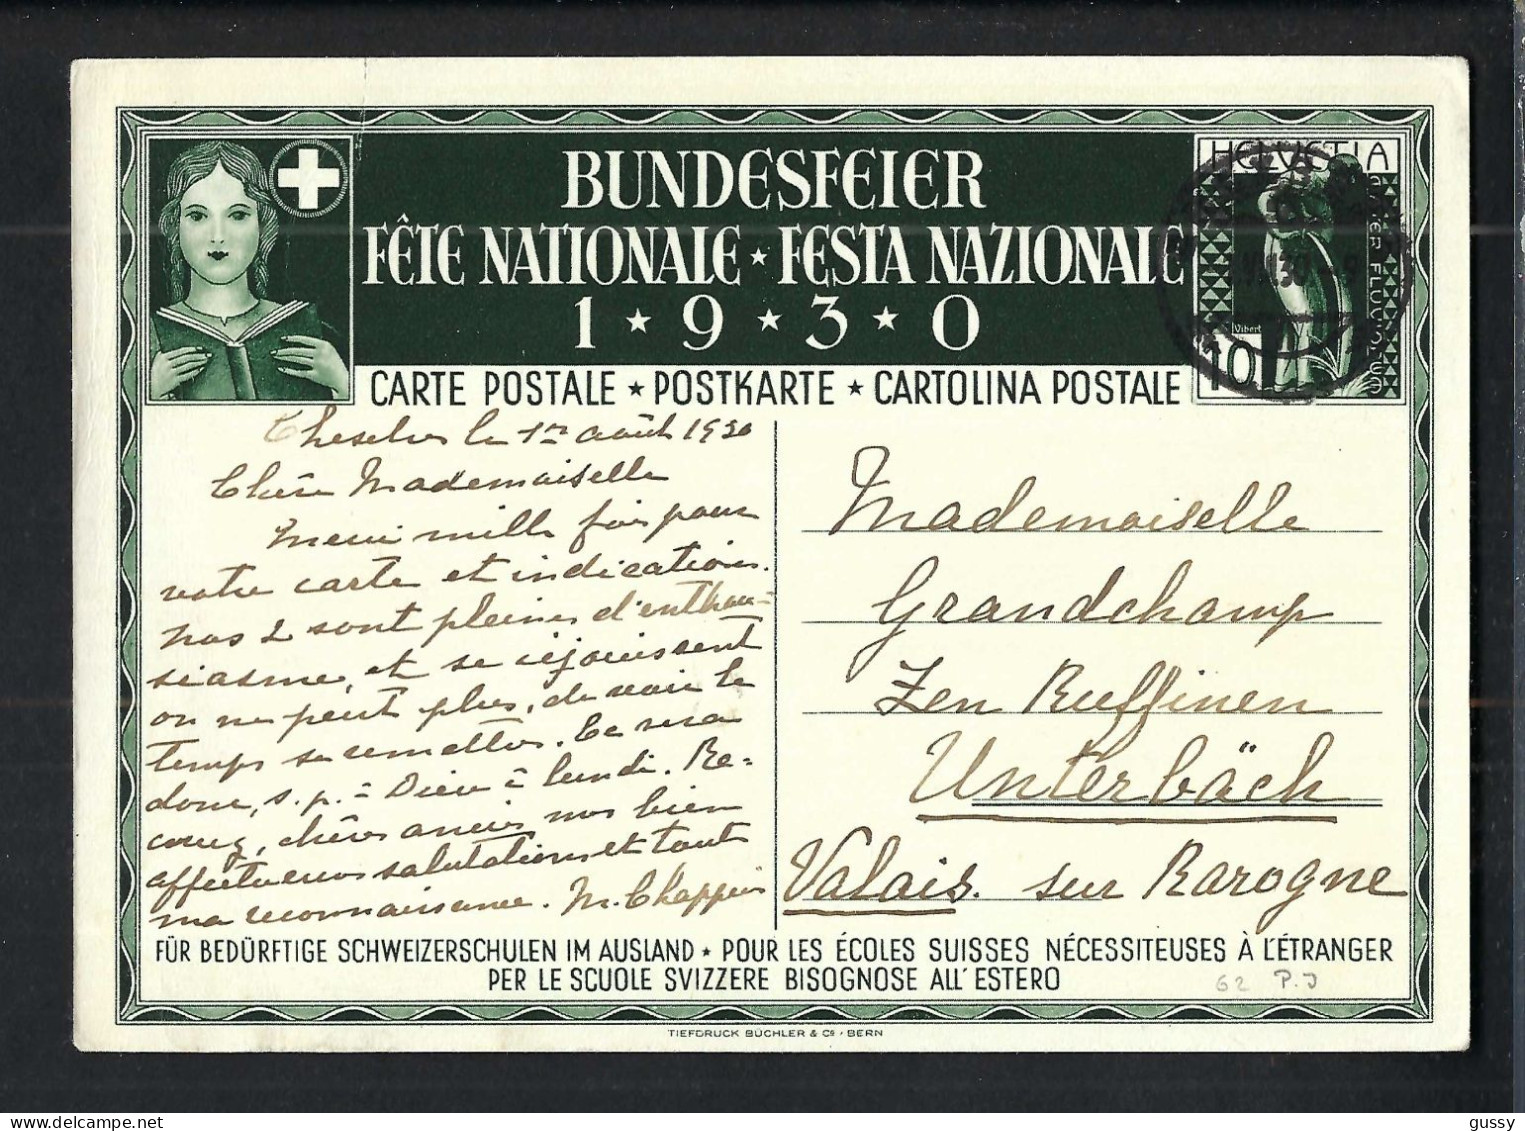 BUNDESFEIER
FÊTE NATIONALE ★ FESTA NAZIONALE
1 ★ 9 ★ 3 ★ 0
HELVETIA
Vibert
10
CARTE POSTALE ★ POSTKARTE ★ CARTOLINA POSTALE
le 1er août 1930
Chère Mademoiselle
Merci mille fois pour
votre carte et indications.
nos 2 sont pleines d'enthou-
siasme, et se réjouissent
on ne peut plus, de voir le
temps se remettre. Ce sera
donc, s. p. à Dieu à lundi. Re-
cevez, chères amies nos bien
affectueuses salutations et toute
ma reconnaissance. M. Chappuis
Mademoiselle
Grandchamp
Zen Ruffinen
Unterbäch
Valais. sur Rarogne
FÜR BEDÜRFTIGE SCHWEIZERSCHULEN IM AUSLAND ★ POUR LES ÉCOLES SUISSES NÉCESSITEUSES À L'ÉTRANGER
PER LE SCUOLE SVIZZERE BISOGNOSE ALL'ESTERO
62 P.J
TIEFDRUCK BÜCHLER & Co · BERN
gussy